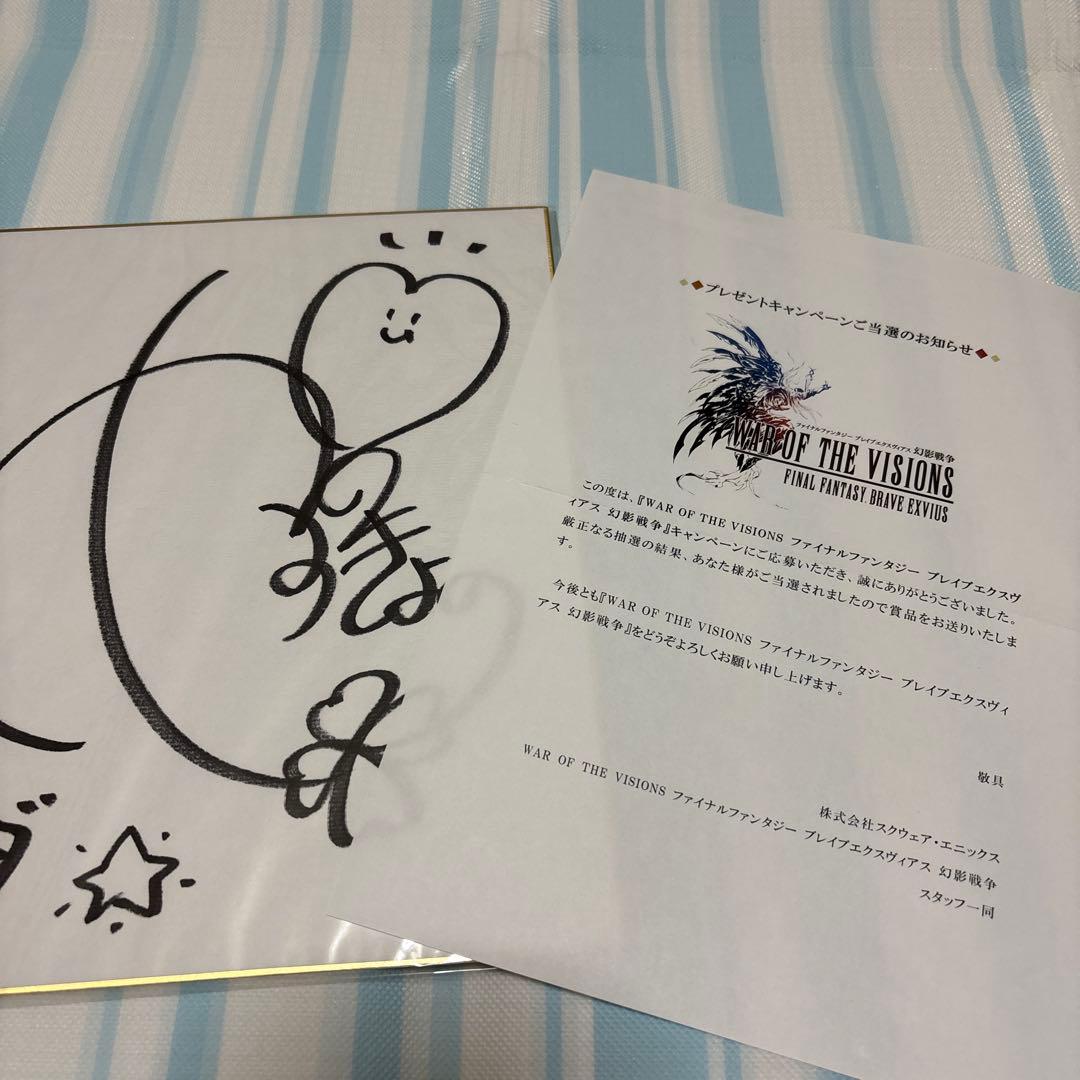 プレゼントキャンペーンご当選のお知らせ
ファイナルファンタジー ブレイブエクスヴィアス 幻影戦争
WAR OF THE VISIONS
FINAL FANTASY BRAVE EXVIUS
この度は、『WAR OF THE VISIONS ファイナルファンタジー ブレイブエクスヴ
ィアス 幻影戦争』キャンペーンにご応募いただき、誠にありがとうございました。
厳正なる抽選の結果、あなた様がご当選されましたので賞品をお送りいたしま
す。
今後とも『WAR OF THE VISIONS ファイナルファンタジー ブレイブエクスヴィ
アス 幻影戦争』をどうぞよろしくお願い申し上げます。
敬具
株式会社スクウェア・エニックス
WAR OF THE VISIONS ファイナルファンタジー ブレイブエクスヴィアス 幻影戦争
スタッフ一同